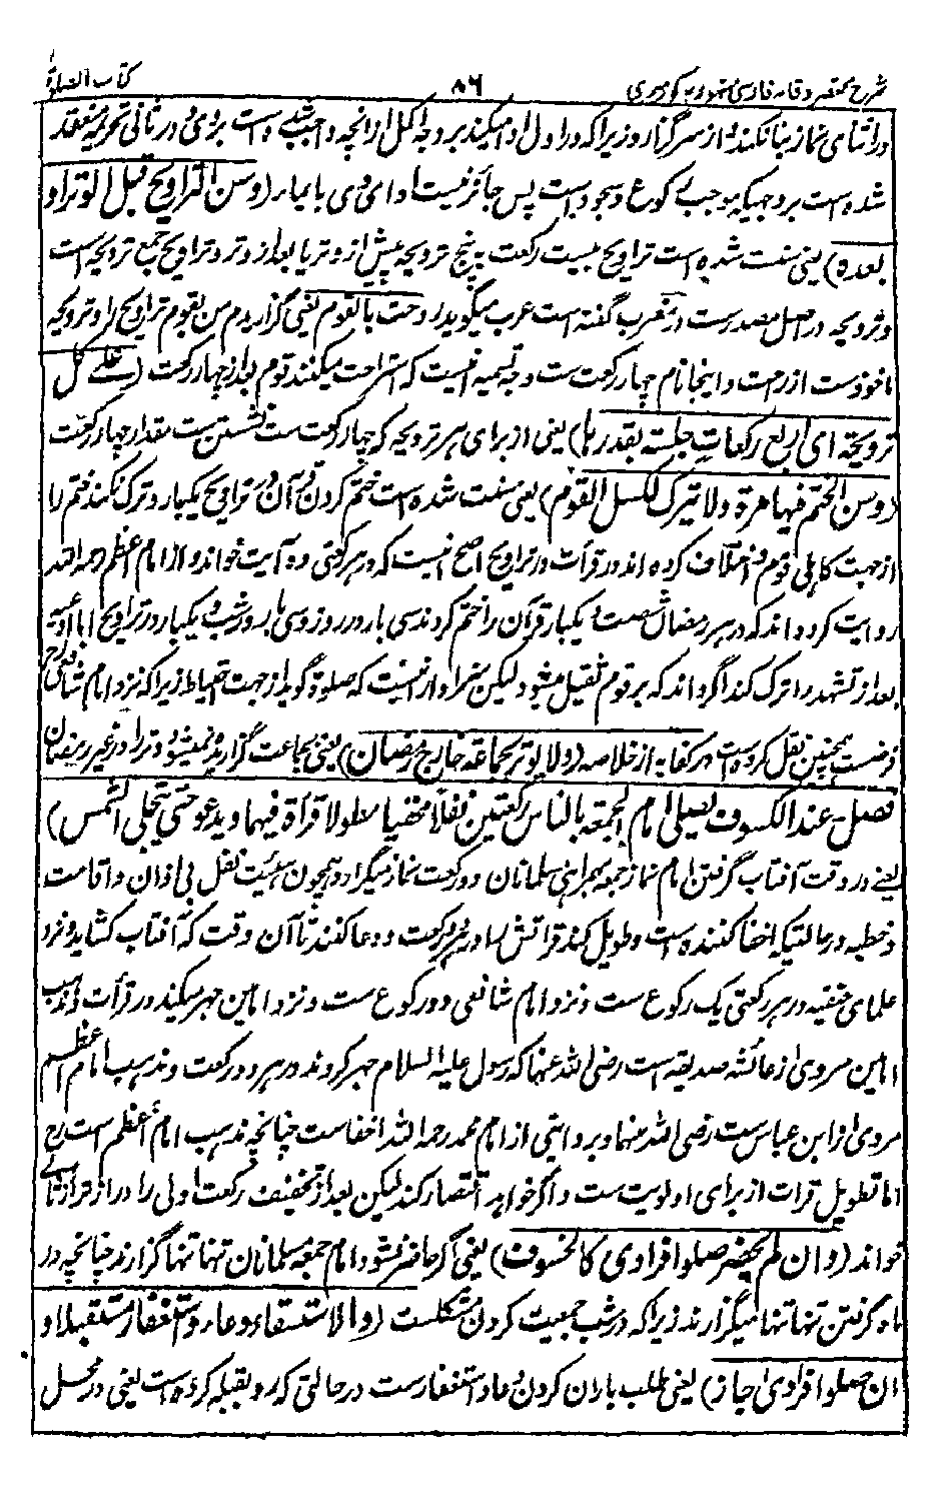 شرح مختصر وقایه فارسی مشهور به کوهیری ۸۶ کتاب الصلوة
در اثنای نماز بنا نکند و از سر گذارد زیرا که در اول ادا میکند بر وجه اکمل از آنچه واجب شده است بر وی و در ثانی تحریمه منعقد
شده است بر وجهیکه موجب رکوع و سجود است پس جائز نیست ادای وی بایما، (وسن التراویح قبل الوتر او
بعده) یعنی سنت شده است تراویح بیست رکعت به پنج ترویحه پیش از وتر یا بعد از وتر و تراویح جمع ترویحه است
و ترویحه در اصل مصدر ست در مغرب گفته است عرب میگوید روحت بالقوم یعنی گزاریدم من بقوم تراویح را و ترویحه
ماخوذ ست از راحت و اینجا نام چهار رکعت ست و وجه تسمیه آنست که استراحت میکنند قوم بعد از چهار رکعت (علے کل
ترویحة ای اربع رکعات جلسته بقدرها) یعنی از برای هر ترویحه که چهار رکعت ست نشستن ست مقدار چهار رکعت
(وسن الختم فیها مرة ولا تیرک لکسل القوم) یعنی سنت شده است ختم کردن قرآن در تراویح یکبار و ترک نکند ختم را
از جهت کاهلی قوم و اختلاف کرده اند در قرأت در تراویح اصح آنست که در هر رکعتی ده آیت خواند و از امام اعظم رحمه الله
روایت کرده اند که در هر رمضان شصت و یکبار قرآن را ختم کردند سی بار در روز و سی بار در شب و یکبار در تراویح اما ادعیه
بعد از تشهد را ترک کند اگر داند که بر قوم ثقیل میشود لیکن سزاوار آنست که صلوة گوید از جهت احتیاط زیرا که نزد امام شافعی رح
فرضست همچنین نقل کرده است در کفایه از خلاصه (ولا یوتر بجماعة خارج رمضان) یعنی بجماعت گزارده نمیشود وتر را در غیر رمضان
فصل عند الکسوف یصلی امام الجمعة بالناس رکعتین نفلا مخفیا مطولا قرأة فیهما ویدعو حتی تتجلی الشمس)
یعنے در وقت آفتاب گرفتن امام نماز جمعه بهمراهی مسلمانان دو رکعت نماز میگزارد همچون هیئیت نفل بی اذان و اقامت
و خطبه در حالتیکه اخفا کننده است و طویل کند قرائتش را در هر دو رکعت و دعا کنند تا آن وقت که آفتاب کشاید و نزد
علمای حنفیه در هر رکعتی یک رکوع ست و نزد امام شافعی دو رکوع ست و نزد امامین جهر میکند در قرأت و مذهب
امامین مروی از عائشه صدیقه است رضی الله عنها که رسول علیه السلام جهر کردند در هر دو رکعت و مذهب امام اعظم
مروی از ابن عباس ست رضی الله عنهما و بروایتی از امام محمد رحمه الله اخفاست چنانچه مذهب امام اعظم است رح
اما تطویل قرات از برای اولویت ست و اگر خواهد اقتصار کند لیکن بعد از تخفیف رکعت اولی را دراز تر از ثانی
خواند (وان لم یحضر صلوا فرادی کالخسوف) یعنی اگر حاضر نشود امام جمعه مسلمانان تنها تنها گزارند چنانچه در
ماه گرفتن تنها تنها میگزارند زیرا که در شب جمعیت کردن مشکلست (والاستسقاء دعاء واستغفار مستقبلا و
ان صلوا فرادی جاز) یعنی طلب باران کردن دعا و استغفار ست در حالتی که رو بقبله کرده است یعنی در محل